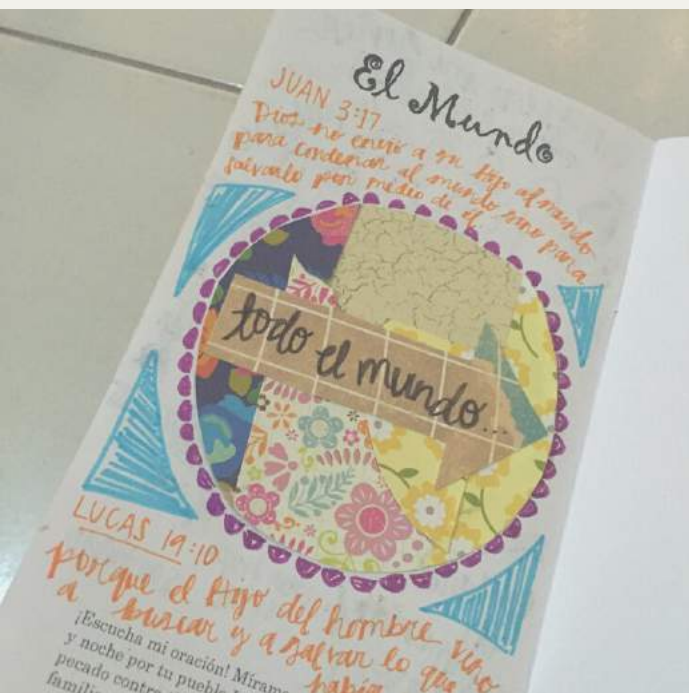 El Mundo
JUAN 3:17
Dios no envió a su hijo al mundo
para condenar al mundo sino para
salvarlo por medio de él.
todo el mundo...
LUCAS 19:10
porque el Hijo del hombre vino
a buscar y a salvar lo que se
había
¡Escucha mi oración! Mírame
y noche por tu pueblo
pecado contra